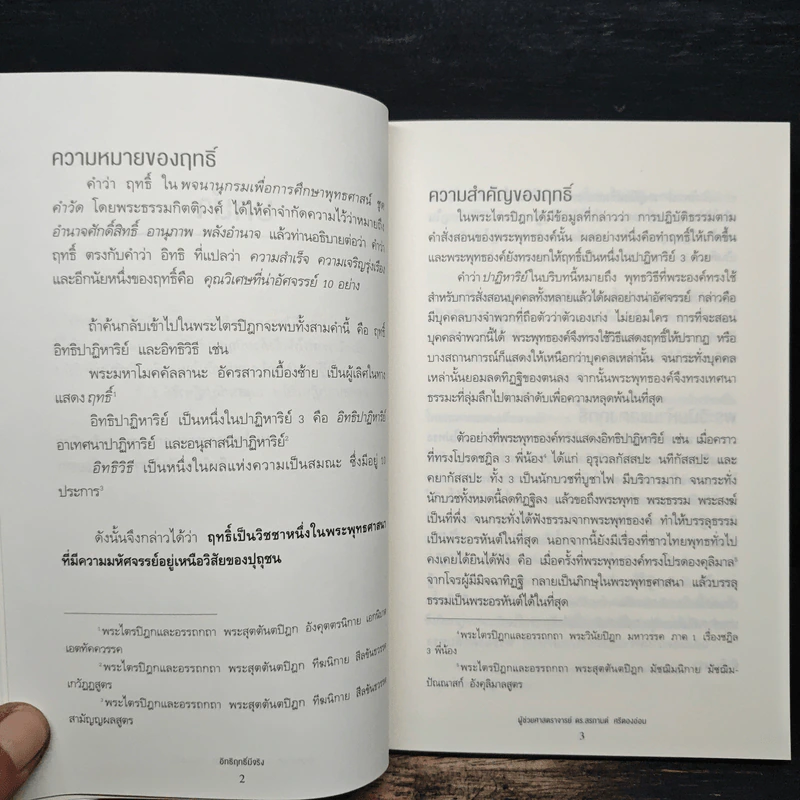 ความหมายของฤทธิ์
คำว่า ฤทธิ์ ใน พจนานุกรมเพื่อการศึกษาพุทธศาสน์ ชุด
คำวัด โดยพระธรรมกิตติวงศ์ ได้ให้คำจำกัดความไว้ว่าหมายถึง
อำนาจศักดิ์สิทธิ์ อานุภาพ พลังอำนาจ แล้วท่านอธิบายต่อว่า คำว่า
ฤทธิ์ ตรงกับคำว่า อิทธิ ที่แปลว่า ความสำเร็จ ความเจริญรุ่งเรือง
และอีกนัยหนึ่งของฤทธิ์คือ คุณวิเศษที่น่าอัศจรรย์ 10 อย่าง
ถ้าค้นกลับเข้าไปในพระไตรปิฎกจะพบทั้งสามคำนี้ คือ ฤทธิ์
อิทธิปาฏิหาริย์ และอิทธิวิธี เช่น
พระมหาโมคคัลลานะ อัครสาวกเบื้องซ้าย เป็นผู้เลิศในทาง
แสดงฤทธิ์¹
อิทธิปาฏิหาริย์ เป็นหนึ่งในปาฏิหาริย์ 3 คือ อิทธิปาฏิหาริย์
อาเทศนาปาฏิหาริย์ และอนุสาสนีปาฏิหาริย์²
อิทธิวิธี เป็นหนึ่งในผลแห่งความเป็นสมณะ ซึ่งมีอยู่ 10
ประการ³
ดังนั้นจึงกล่าวได้ว่า ฤทธิ์เป็นวิชชาหนึ่งในพระพุทธศาสนา
ที่มีความมหัศจรรย์อยู่เหนือวิสัยของปุถุชน
¹พระไตรปิฎกและอรรถกถา พระสุตตันตปิฎก อังคุตตรนิกาย เอกนิบาต
เอตทัคควรรค
²พระไตรปิฎกและอรรถกถา พระสุตตันตปิฎก ทีฆนิกาย สีลขันธวรรค
เกวัฏฏสูตร
³พระไตรปิฎกและอรรถกถา พระสุตตันตปิฎก ทีฆนิกาย สีลขันธวรรค
สามัญญผลสูตร
อิทธิฤทธิ์มีจริง
2
ความสำคัญของฤทธิ์
ในพระไตรปิฎกได้มีข้อมูลที่กล่าวว่า การปฏิบัติธรรมตาม
คำสั่งสอนของพระพุทธองค์นั้น ผลอย่างหนึ่งคือทำฤทธิ์ให้เกิดขึ้น
และพระพุทธองค์ยังทรงยกให้ฤทธิ์เป็นหนึ่งในปาฏิหาริย์ 3 ด้วย
คำว่า ปาฏิหาริย์ ในบริบทนี้หมายถึง พุทธวิธีที่พระองค์ทรงใช้
สำหรับการสั่งสอนบุคคลทั้งหลายแล้วได้ผลอย่างน่าอัศจรรย์ กล่าวคือ
มีบุคคลบางจำพวกที่ถือตัวว่าตัวเองเก่ง ไม่ยอมใคร การที่จะสอน
บุคคลจำพวกนี้ได้ พระพุทธองค์จึงทรงใช้วิธีแสดงฤทธิ์ให้ปรากฏ หรือ
บางสถานการณ์ก็แสดงให้เหนือกว่าบุคคลเหล่านั้น จนกระทั่งบุคคล
เหล่านั้นยอมลดทิฏฐิของตนลง จากนั้นพระพุทธองค์จึงทรงเทศนา
ธรรมะที่ลุ่มลึกไปตามลำดับเพื่อความหลุดพ้นในที่สุด
ตัวอย่างที่พระพุทธองค์ทรงแสดงอิทธิปาฏิหาริย์ เช่น เมื่อคราว
ที่ทรงโปรดชฎิล 3 พี่น้อง⁴ ได้แก่ อุรุเวลกัสสปะ นทีกัสสปะ และ
คยากัสสปะ ทั้ง 3 เป็นนักบวชที่บูชาไฟ มีบริวารมาก จนกระทั่ง
นักบวชทั้งหมดนี้ลดทิฏฐิลง แล้วขอถึงพระพุทธ พระธรรม พระสงฆ์
เป็นที่พึ่ง จนกระทั่งได้ฟังธรรมจากพระพุทธองค์ ทำให้บรรลุธรรม
เป็นพระอรหันต์ในที่สุด นอกจากนี้ยังมีเรื่องที่ชาวไทยพุทธทั่วไป
คงเคยได้ยินได้ฟัง คือ เมื่อครั้งที่พระพุทธองค์ทรงโปรดองคุลิมาล⁵
จากโจรผู้มีมิจฉาทิฏฐิ กลายเป็นภิกษุในพระพุทธศาสนา แล้วบรรลุ
ธรรมเป็นพระอรหันต์ได้ในที่สุด
⁴พระไตรปิฎกและอรรถกถา พระวินัยปิฎก มหาวรรค ภาค 1 เรื่องชฎิล
3 พี่น้อง
⁵พระไตรปิฎกและอรรถกถา พระสุตตันตปิฎก มัชฌิมนิกาย มัชฌิม-
ปัณณาสก์ อังคุลิมาลสูตร
ผู้ช่วยศาสตราจารย์ ดร.สรกานต์ ศรีตองอ่อน
3